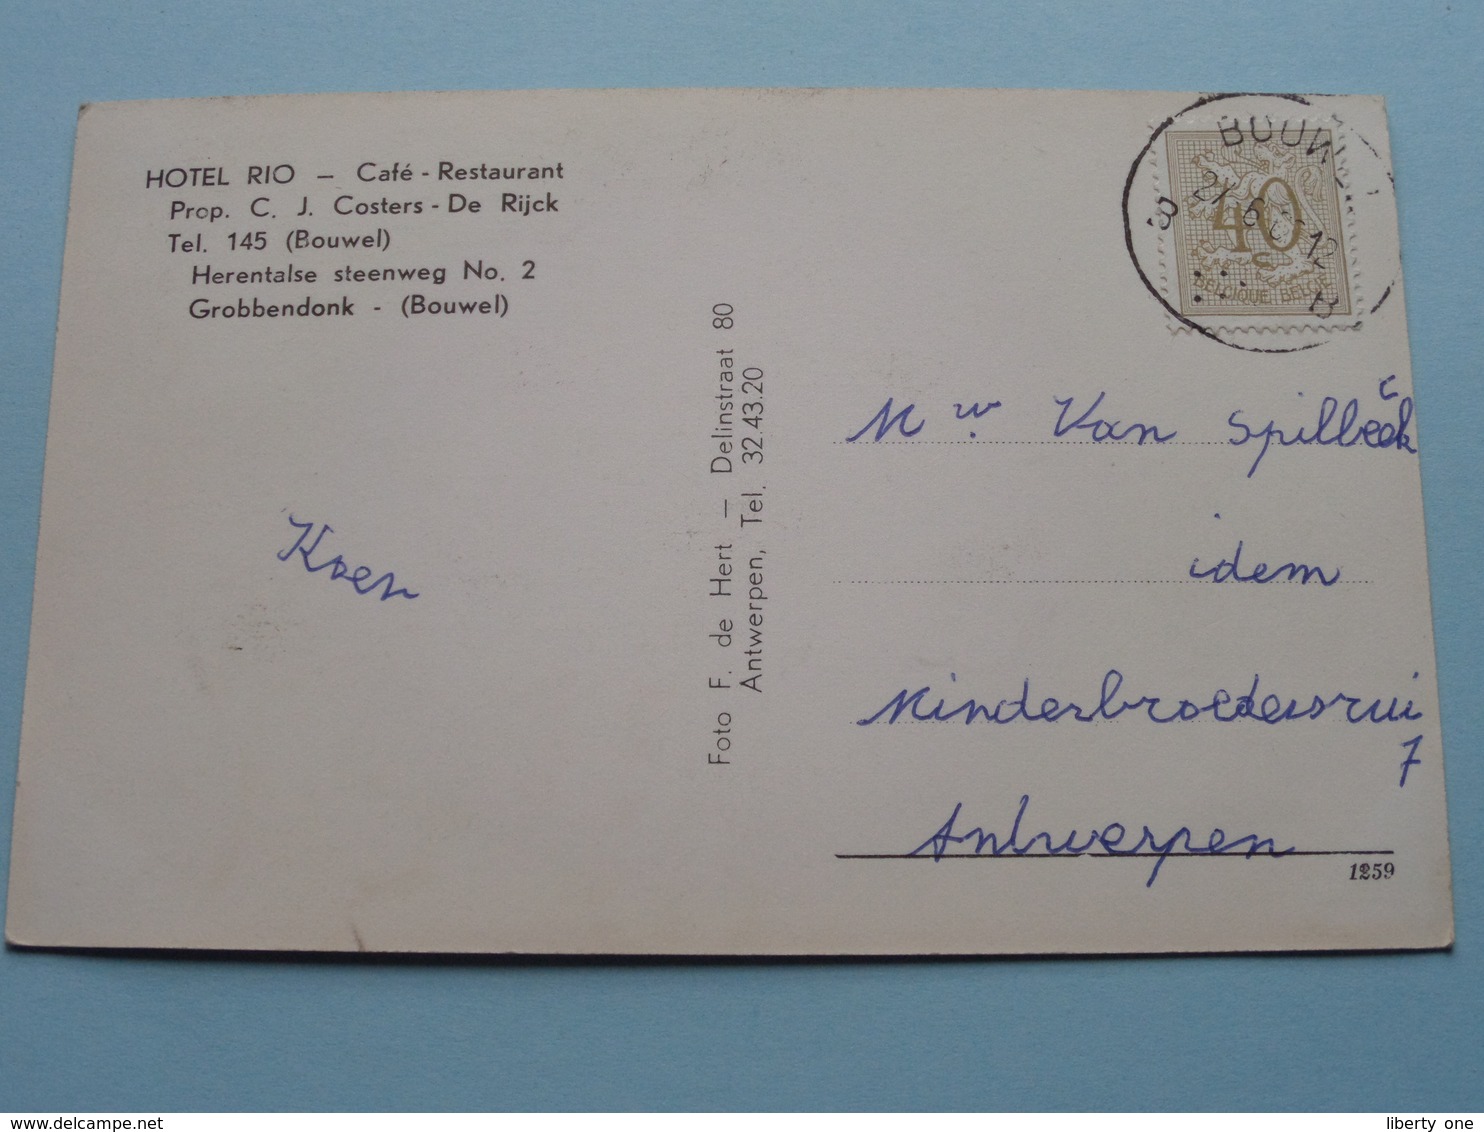 HOTEL RIO — Café - Restaurant
Prop. C. J. Costers - De Rijck
Tel. 145 (Bouwel)
Herentalse steenweg No. 2
Grobbendonk - (Bouwel)
Koen
Foto F. de Hert — Delinstraat 80
Antwerpen, Tel. 32.43.20
40
BELGIQUE BELGIE
12
B
Mw. Van Spilbeeck
idem
Minderbroedersrui
7
Antwerpen
1259
liberty one